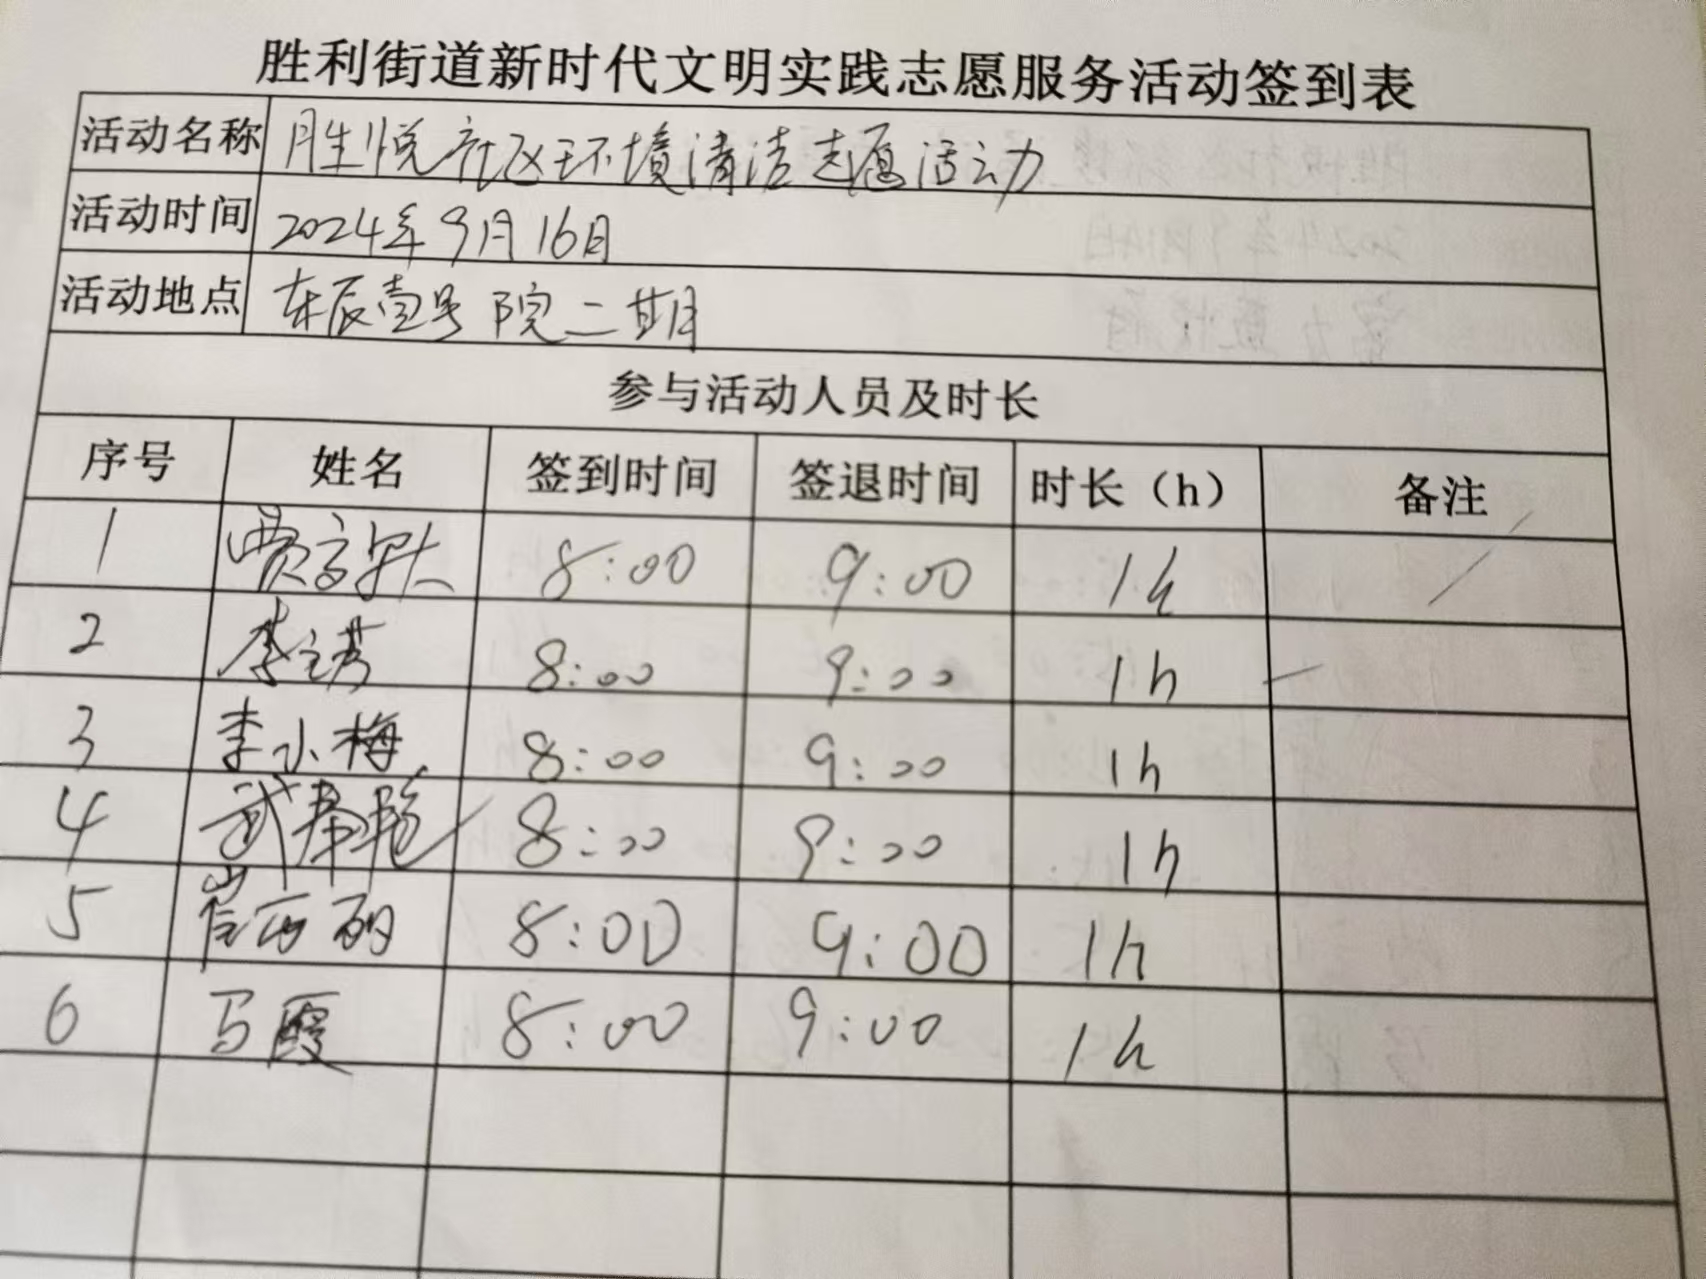 胜利街道新时代文明实践志愿服务活动签到表
活动名称 胜悦社区环境清洁志愿活动
活动时间 2024年9月16日
活动地点 东辰壹号院二期
参与活动人员及时长
序号 姓名 签到时间 签退时间 时长（h） 备注
1 8:00 9:00 1h /
2 8:00 9:00 1h
3 李小梅 8:00 9:00 1h
4 8:00 9:00 1h
5 8:00 9:00 1h
6 马霞 8:00 9:00 1h